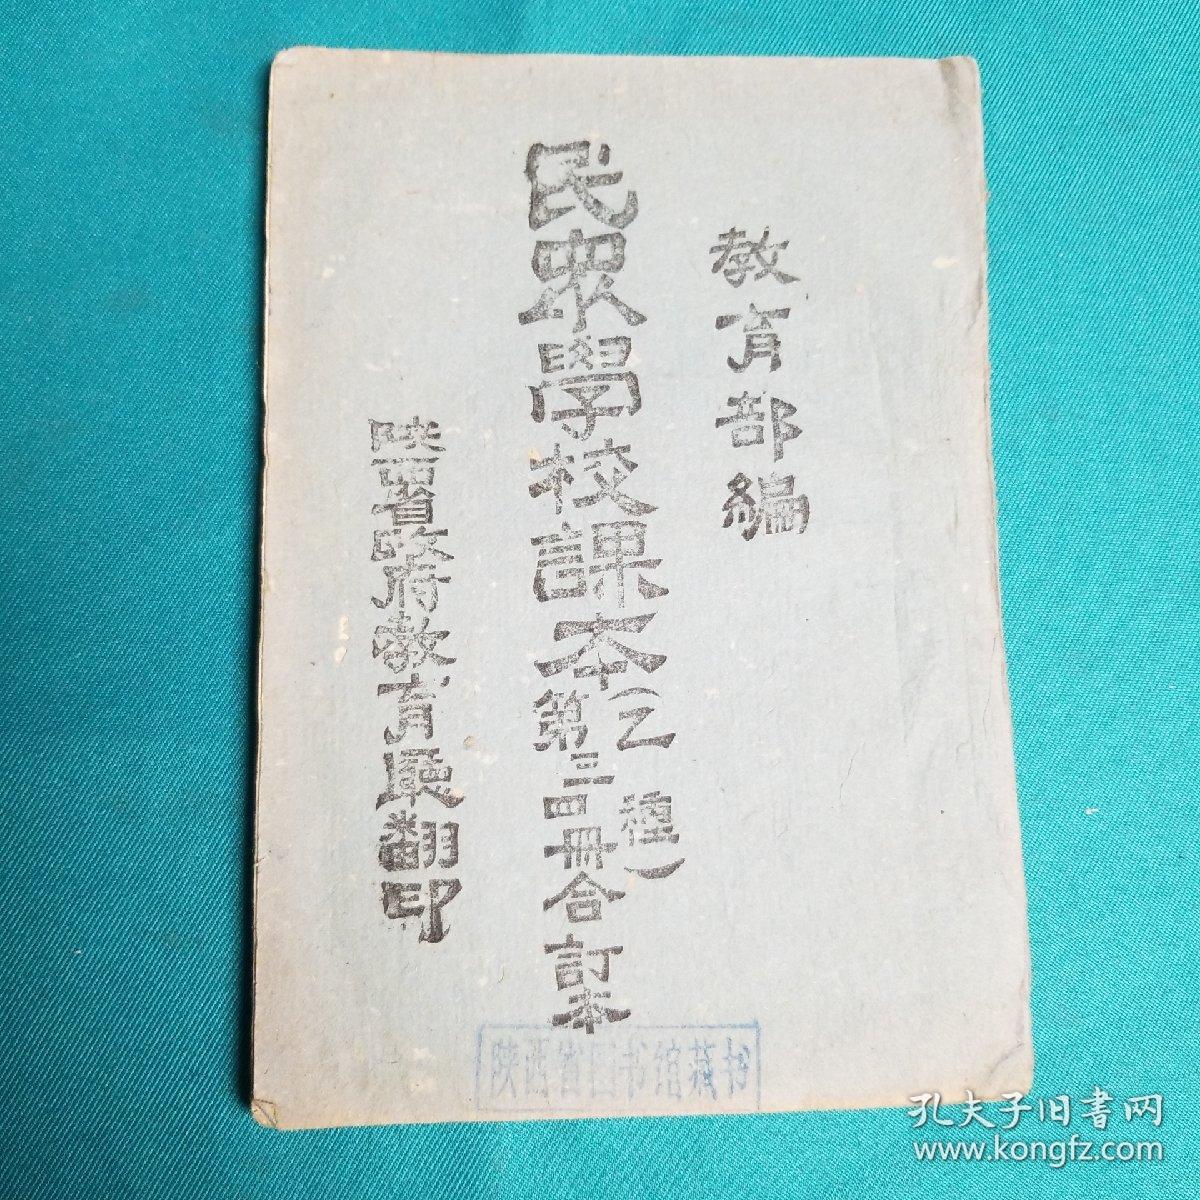 教育部編
民眾學校課本(乙種)
第三四冊合訂本
陝西省政府教育廳翻印
陕西省图书馆藏书
孔夫子旧書网
www.kongfz.com